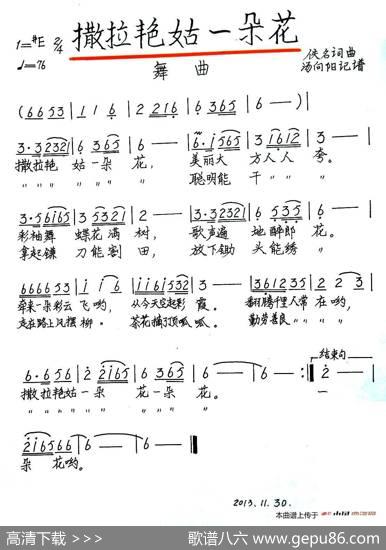 撒拉艳姑一朵花
1=#E 2/4
♩=76
舞曲
佚名词曲
汤向阳记谱
(6 6 5 3 | 1 1 6 | 2 2 1 6 | 6 3 6 5 | 6 — )|
3·3 2321 | 6 3 6 5 | 3 — | 6·i 5 6 5 | 3 i 6 i 2 | 3 — |
撒拉艳 姑一朵 花, 美丽大 方人人 夸。
〃 〃 〃 〃 〃 〃 〃 聪明能 干〃〃 〃
3·5 6i65 | 3 5321 | 2 — | 3·3 2321 | 6 5 3 5 | 6 — |
彩袖舞 蝶花满 树, 歌声遍 地醉郎 花。
拿起镰 刀能割 田, 放下锄 头能绣 〃
6666 53 | i i 6 | iii6 532 | 3 — | 3612 35 | 2 2 3 |
牵来一朵彩云 飞哟, 从今天空起彩 霞。 翻腾千里人常 在哟,
走在路上风摆 柳。 茶花摘了顶呱 呱。 勤劳善良〃〃 〃〃
6·6 5 6 | 2 2i65 | 6 3 6 5 | 6 — | 6 — :| 2 2 — |
结束句
撒拉艳姑一朵 花一朵 花。 一
〃 〃 〃 〃 〃 〃 〃 〃 〃 〃
2i65 66 | 6 — | 6 — ‖
朵 花哟。
2013.11.30.
本曲谱上传于
高清下载 >>>
歌谱八六 www.gepu86.com